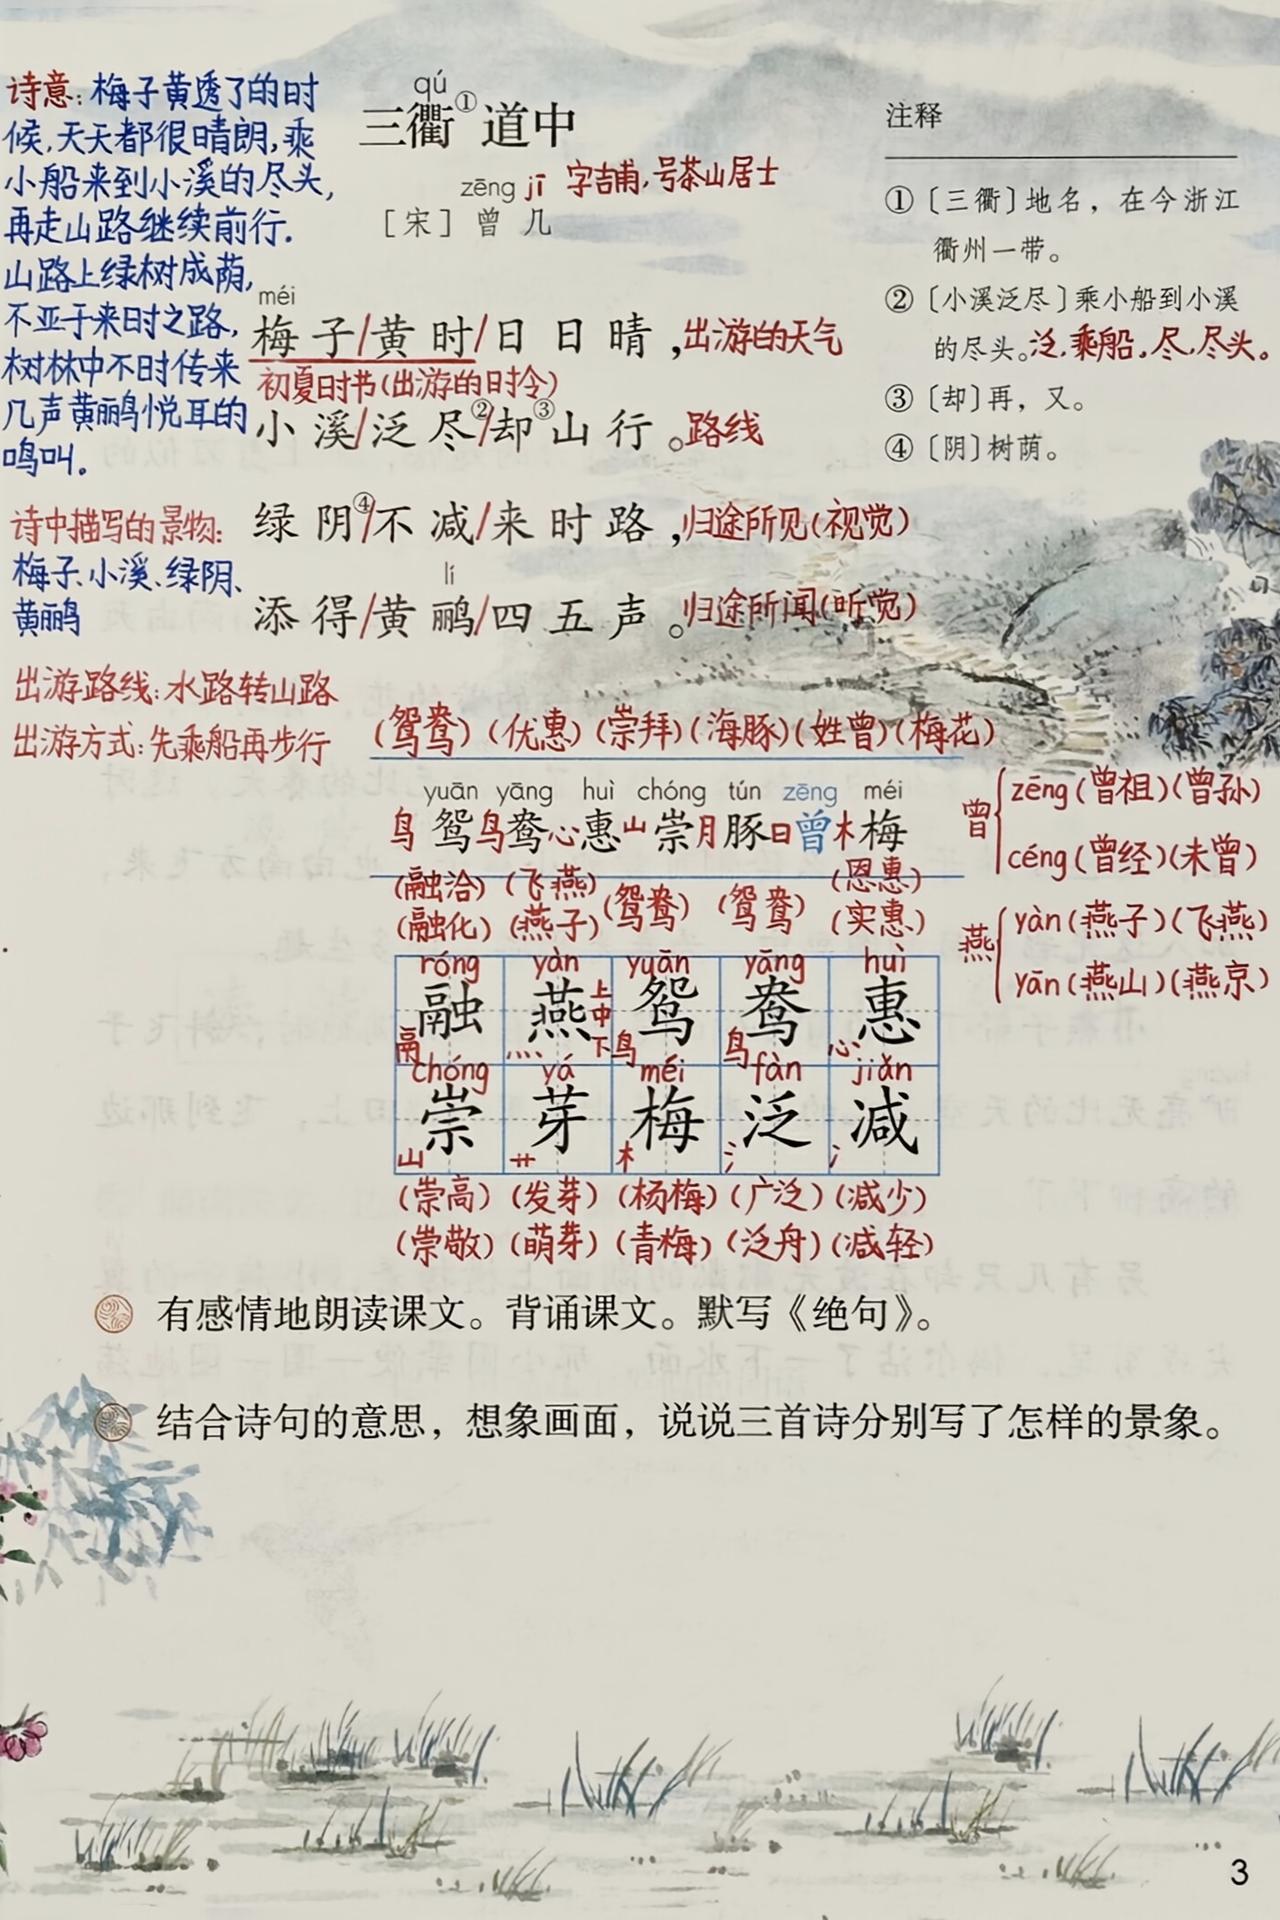 诗意:梅子黄透了的时
候,天天都很晴朗,乘
小船来到小溪的尽头,
再走山路继续前行.
山路上绿树成荫,
不亚于来时之路,
树林中不时传来
几声黄鹂悦耳的
鸣叫.
诗中描写的景物:
梅子、小溪、绿阴、
黄鹂
出游路线:水路转山路
出游方式:先乘船再步行
qú
三衢①道中
zēng jī 字吉甫,号茶山居士
[宋] 曾 几
méi
梅子/黄时/日日晴,出游的天气
初夏时节(出游的时令)
小溪/泛尽②/却③山行。路线
绿阴④/不减/来时路,归途所见(视觉)
lí
添得/黄鹂/四五声。归途所闻(听觉)
注释
①〔三衢〕地名，在今浙江
衢州一带。
②〔小溪泛尽〕乘小船到小溪
的尽头。泛,乘船。尽,尽头。
③〔却〕再，又。
④〔阴〕树荫。
(鸳鸯)(优惠)(崇拜)(海豚)(姓曾)(梅花)
yuān yāng huì chóng tún zēng méi
鸟鸳鸟鸯心惠山崇月豚日曾木梅
曾 zēng(曾祖)(曾孙)
céng(曾经)(未曾)
燕 yàn(燕子)(飞燕)
yān(燕山)(燕京)
(融洽)(飞燕)(鸳鸯)(鸳鸯)(恩惠)
(融化)(燕子)(实惠)
róng yàn yuān yāng huì
融 燕 鸳 鸯 惠
鬲 灬 上中下 鸟 鸟 心
chóng yá méi fàn jiǎn
崇 芽 梅 泛 减
山 艹 木 氵 冫
(崇高)(发芽)(杨梅)(广泛)(减少)
(崇敬)(萌芽)(青梅)(泛舟)(减轻)
有感情地朗读课文。背诵课文。默写《绝句》。
结合诗句的意思，想象画面，说说三首诗分别写了怎样的景象。
3